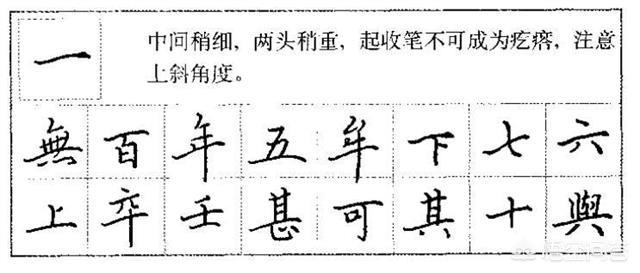 一
中间稍细，两头稍重，起收笔不可成为疙瘩，注意
上斜角度。
無百年五牟下七六
上卒壬甚可其十與